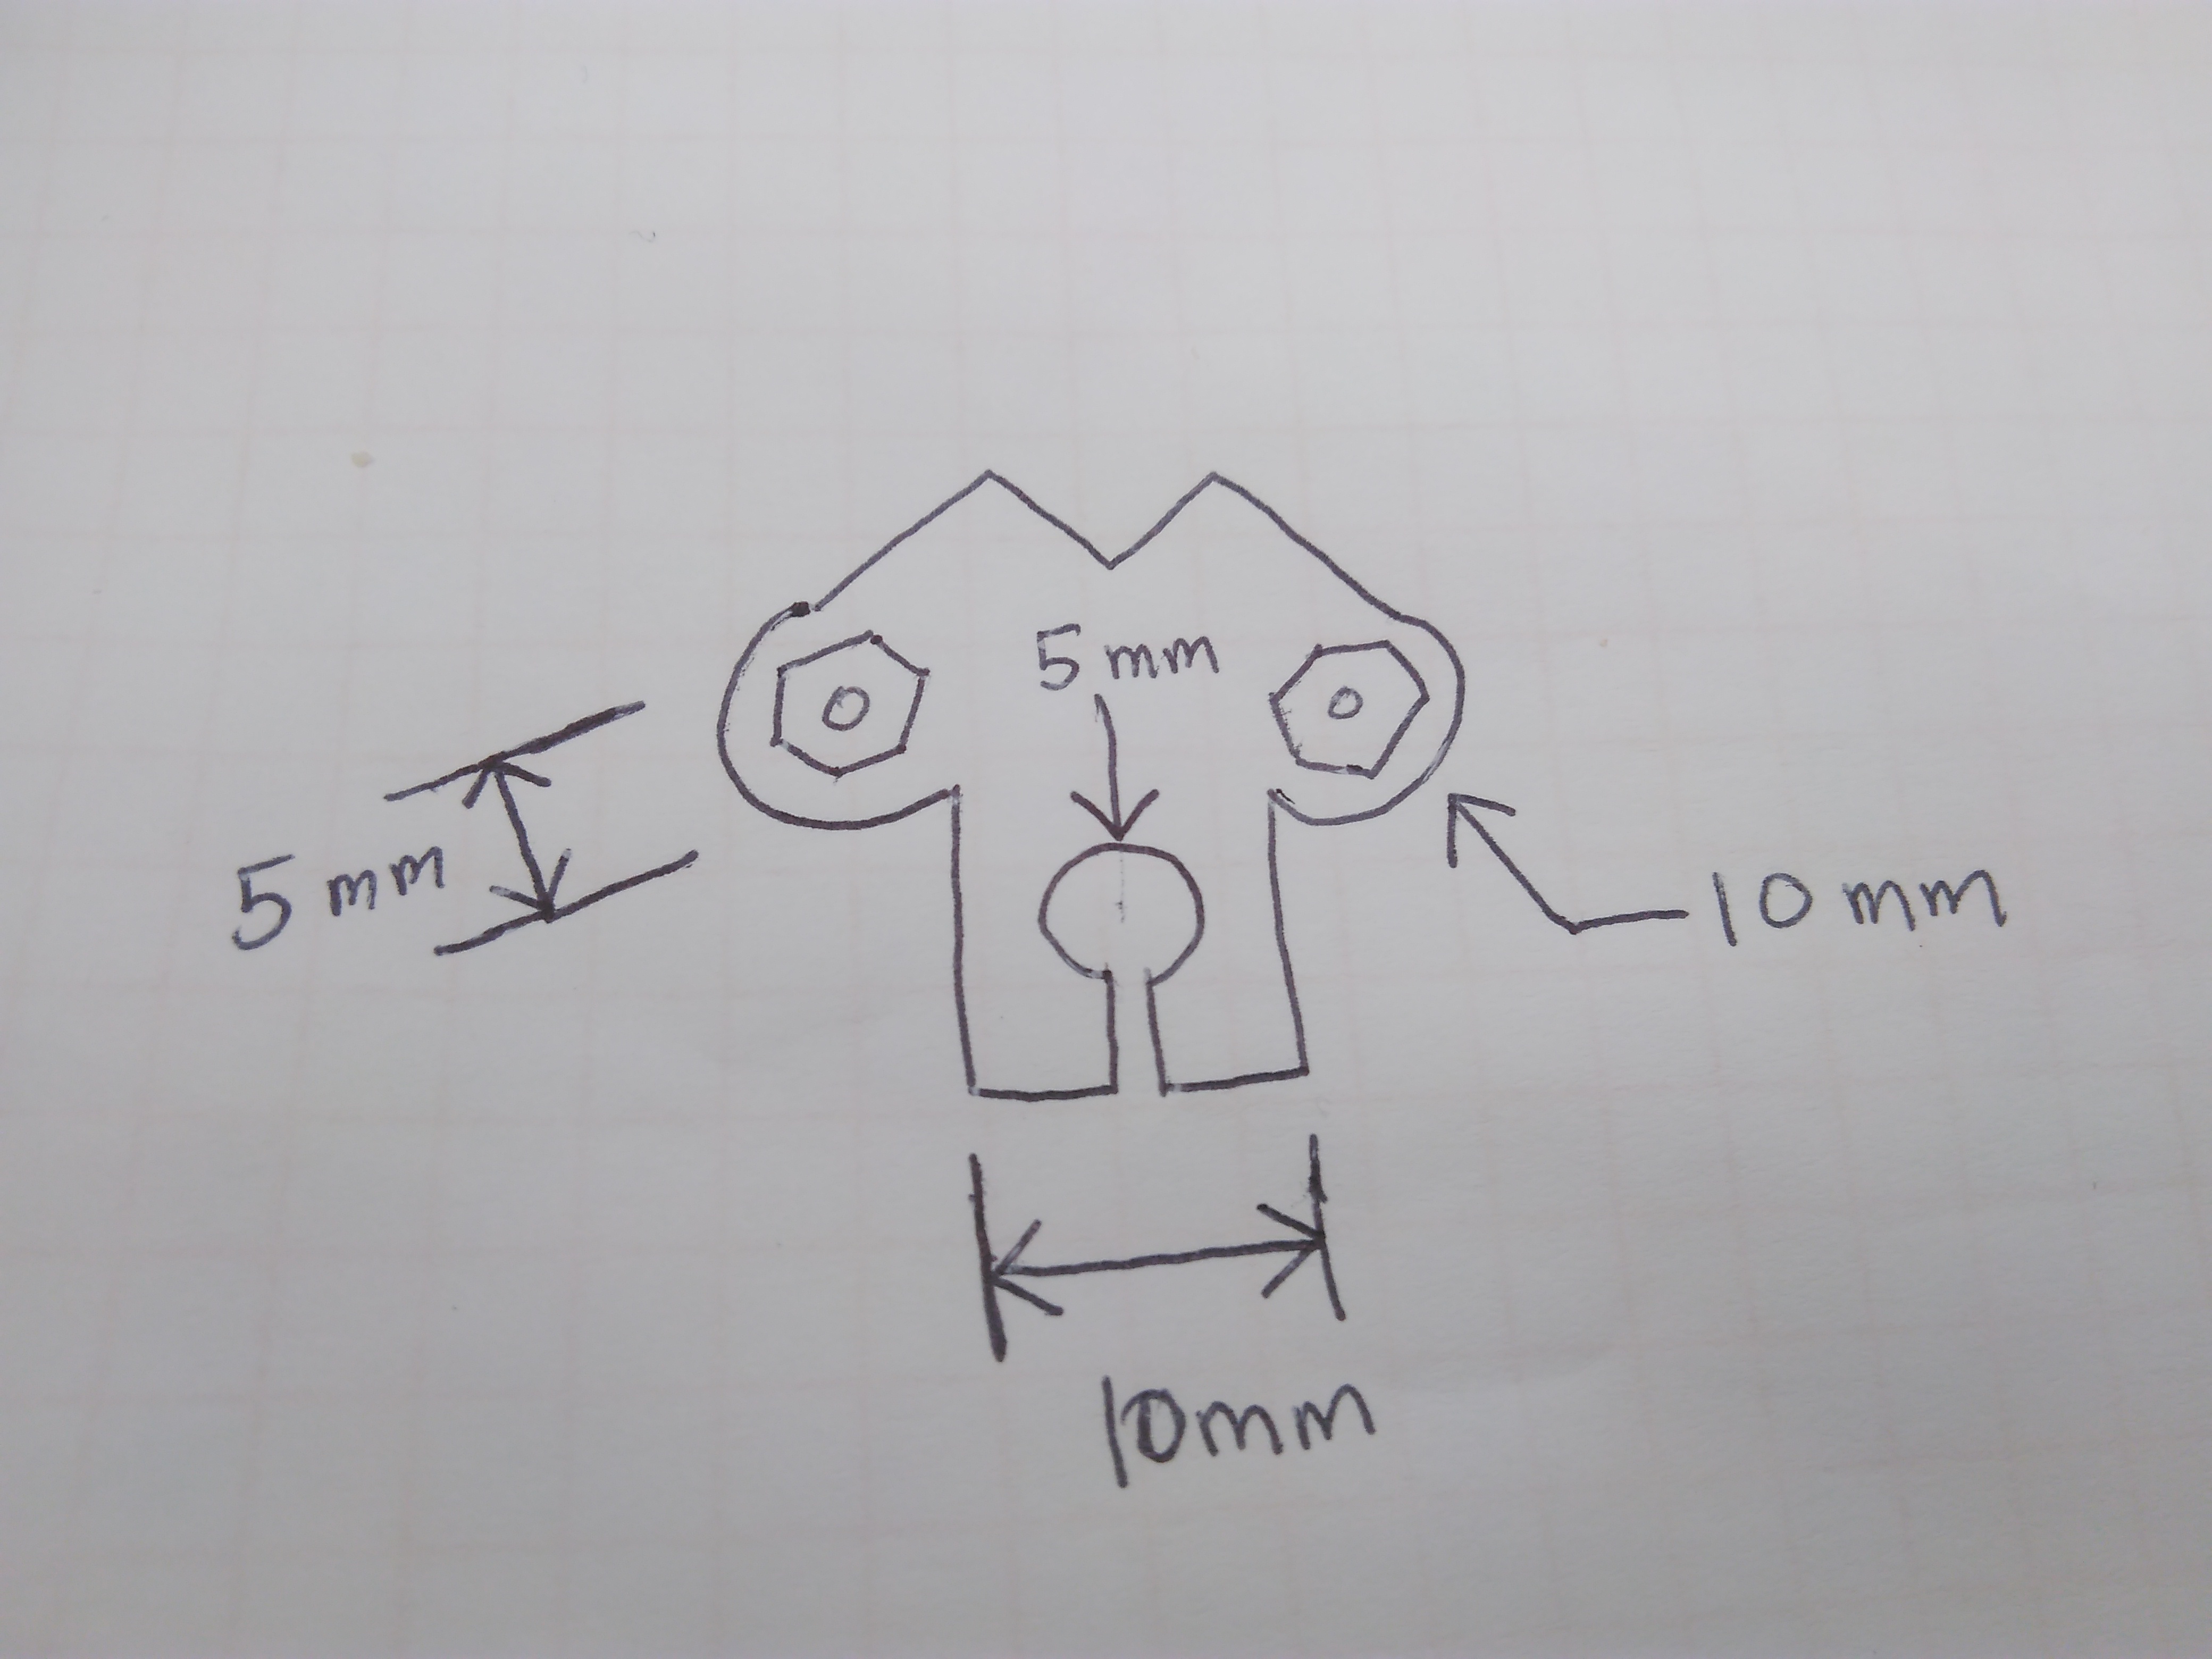 5mm
5mm
10mm
10mm